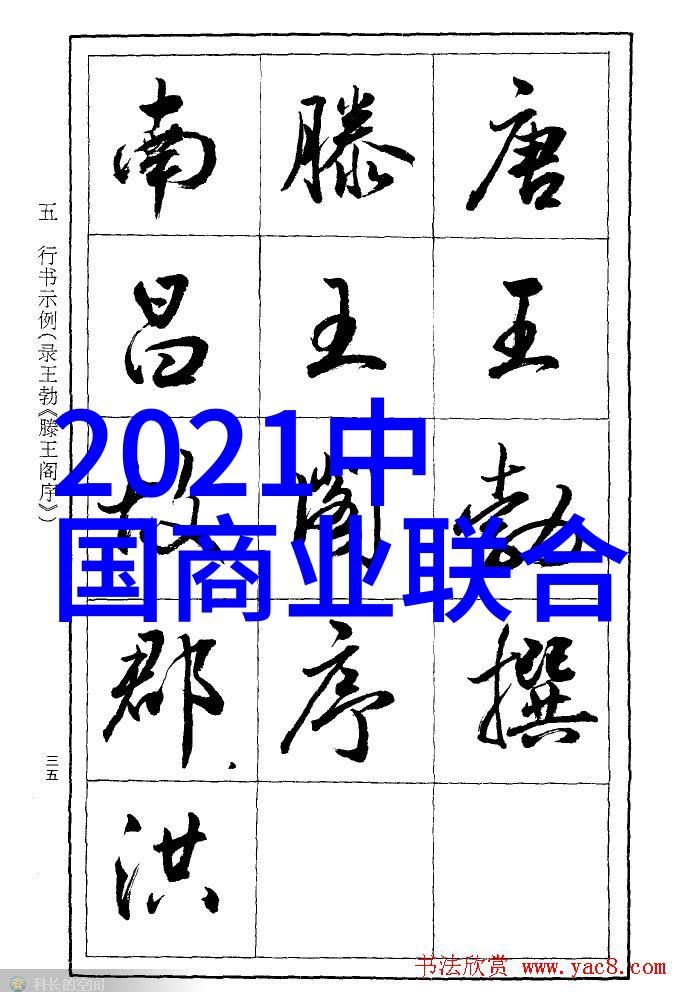 唐王勃撰
滕王阁序
南昌故郡洪
五 行书示例(录王勃《滕王阁序》)
三五
2021中
国商业联合
书法欣赏 www.yac8.com
科长的空间